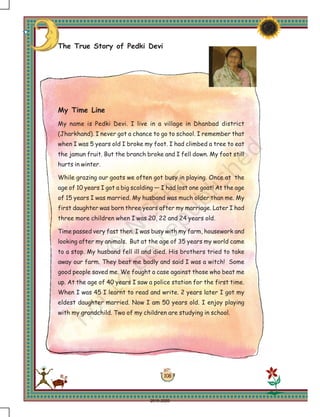 The True Story of Pedki Devi
My Time Line
My name is Pedki Devi. I live in a village in Dhanbad district
(Jharkhand). I never got a chance to go to school. I remember that
when I was 5 years old I broke my foot. I had climbed a tree to eat
the jamun fruit. But the branch broke and I fell down. My foot still
hurts in winter.
While grazing our goats we often got busy in playing. Once at the
age of 10 years I got a big scolding — I had lost one goat! At the age
of 15 years I was married. My husband was much older than me. My
first daughter was born three years after my marriage. Later I had
three more children when I was 20, 22 and 24 years old.
Time passed very fast then. I was busy with my farm, housework and
looking after my animals. But at the age of 35 years my world came
to a stop. My husband fell ill and died. His brothers tried to take
away our farm. They beat me badly and said I was a witch! Some
good people saved me. We fought a case against those who beat me
up. At the age of 40 years I saw a police station for the first time.
When I was 45 I learnt to read and write. 2 years later I got my
eldest daughter married. Now I am 50 years old. I enjoy playing
with my grandchild. Two of my children are studying in school.